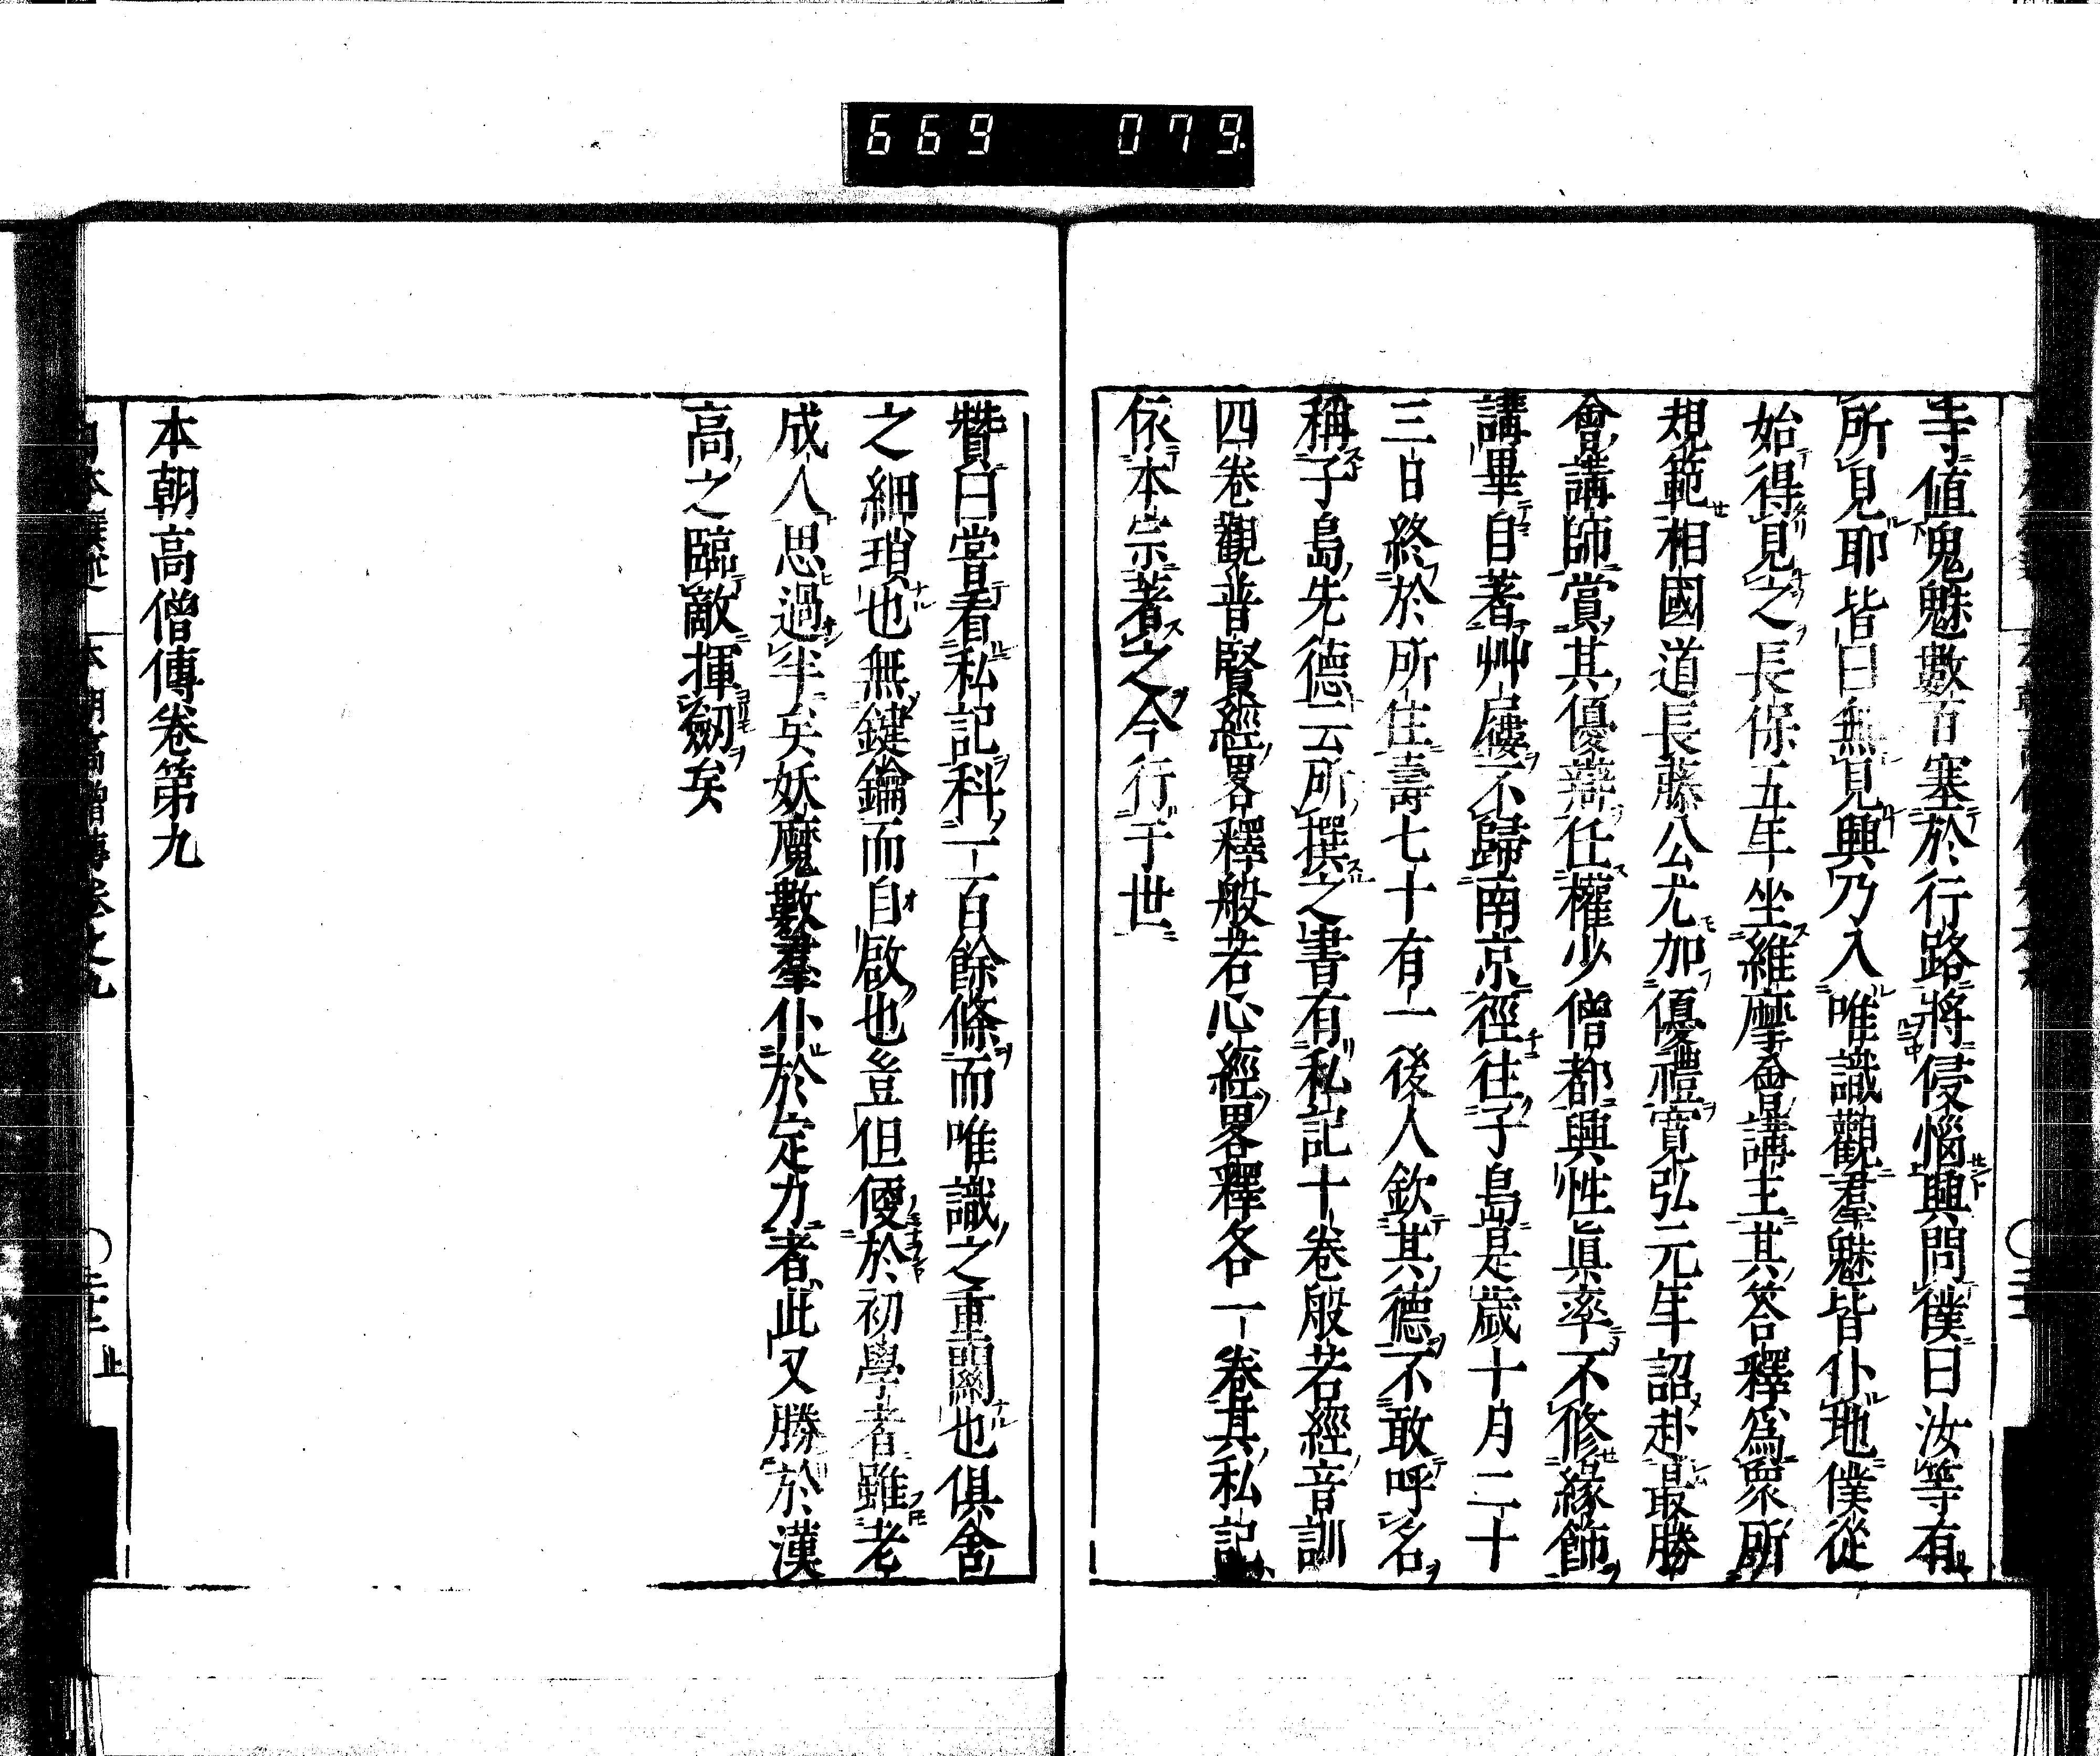 669 079
寺値鬼魅數百塞於行路將侵惱興問僕曰汝等有
所見耶皆曰無見興乃入唯識觀羣魅皆仆地僕從
始得見之長保五年坐維摩會講主其答釋爲眾所
規範相國道長藤公尤加優禮寬弘元年詔赴最勝
會講師賞其優辯任權少僧都興性眞率不修緣飾
講畢自著艸屨不歸南京徑往子島是歲十月二十
三日終於所住壽七十有一後人欽其德不敢呼名
稱子島先德云所撰之書有私記十卷般若經音訓
四卷觀普賢經畧釋般若心經畧釋各一卷其私記
依本宗著之今行于世
贊曰嘗看私記科一百餘條而唯識之重關也俱舍
之細瑣也無鍵鑰而自啟也豈但便於初學者雖老
成人思過半矣妖魔數羣仆於定力者此又勝於漢
高之臨敵揮劒矣
本朝高僧傳卷第九